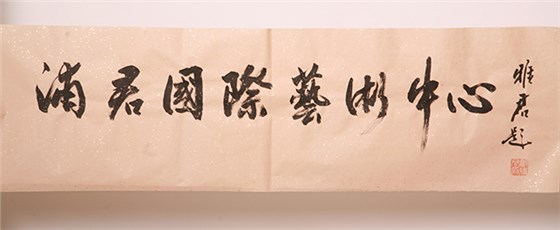 浦君國際藝術中心
雅君題